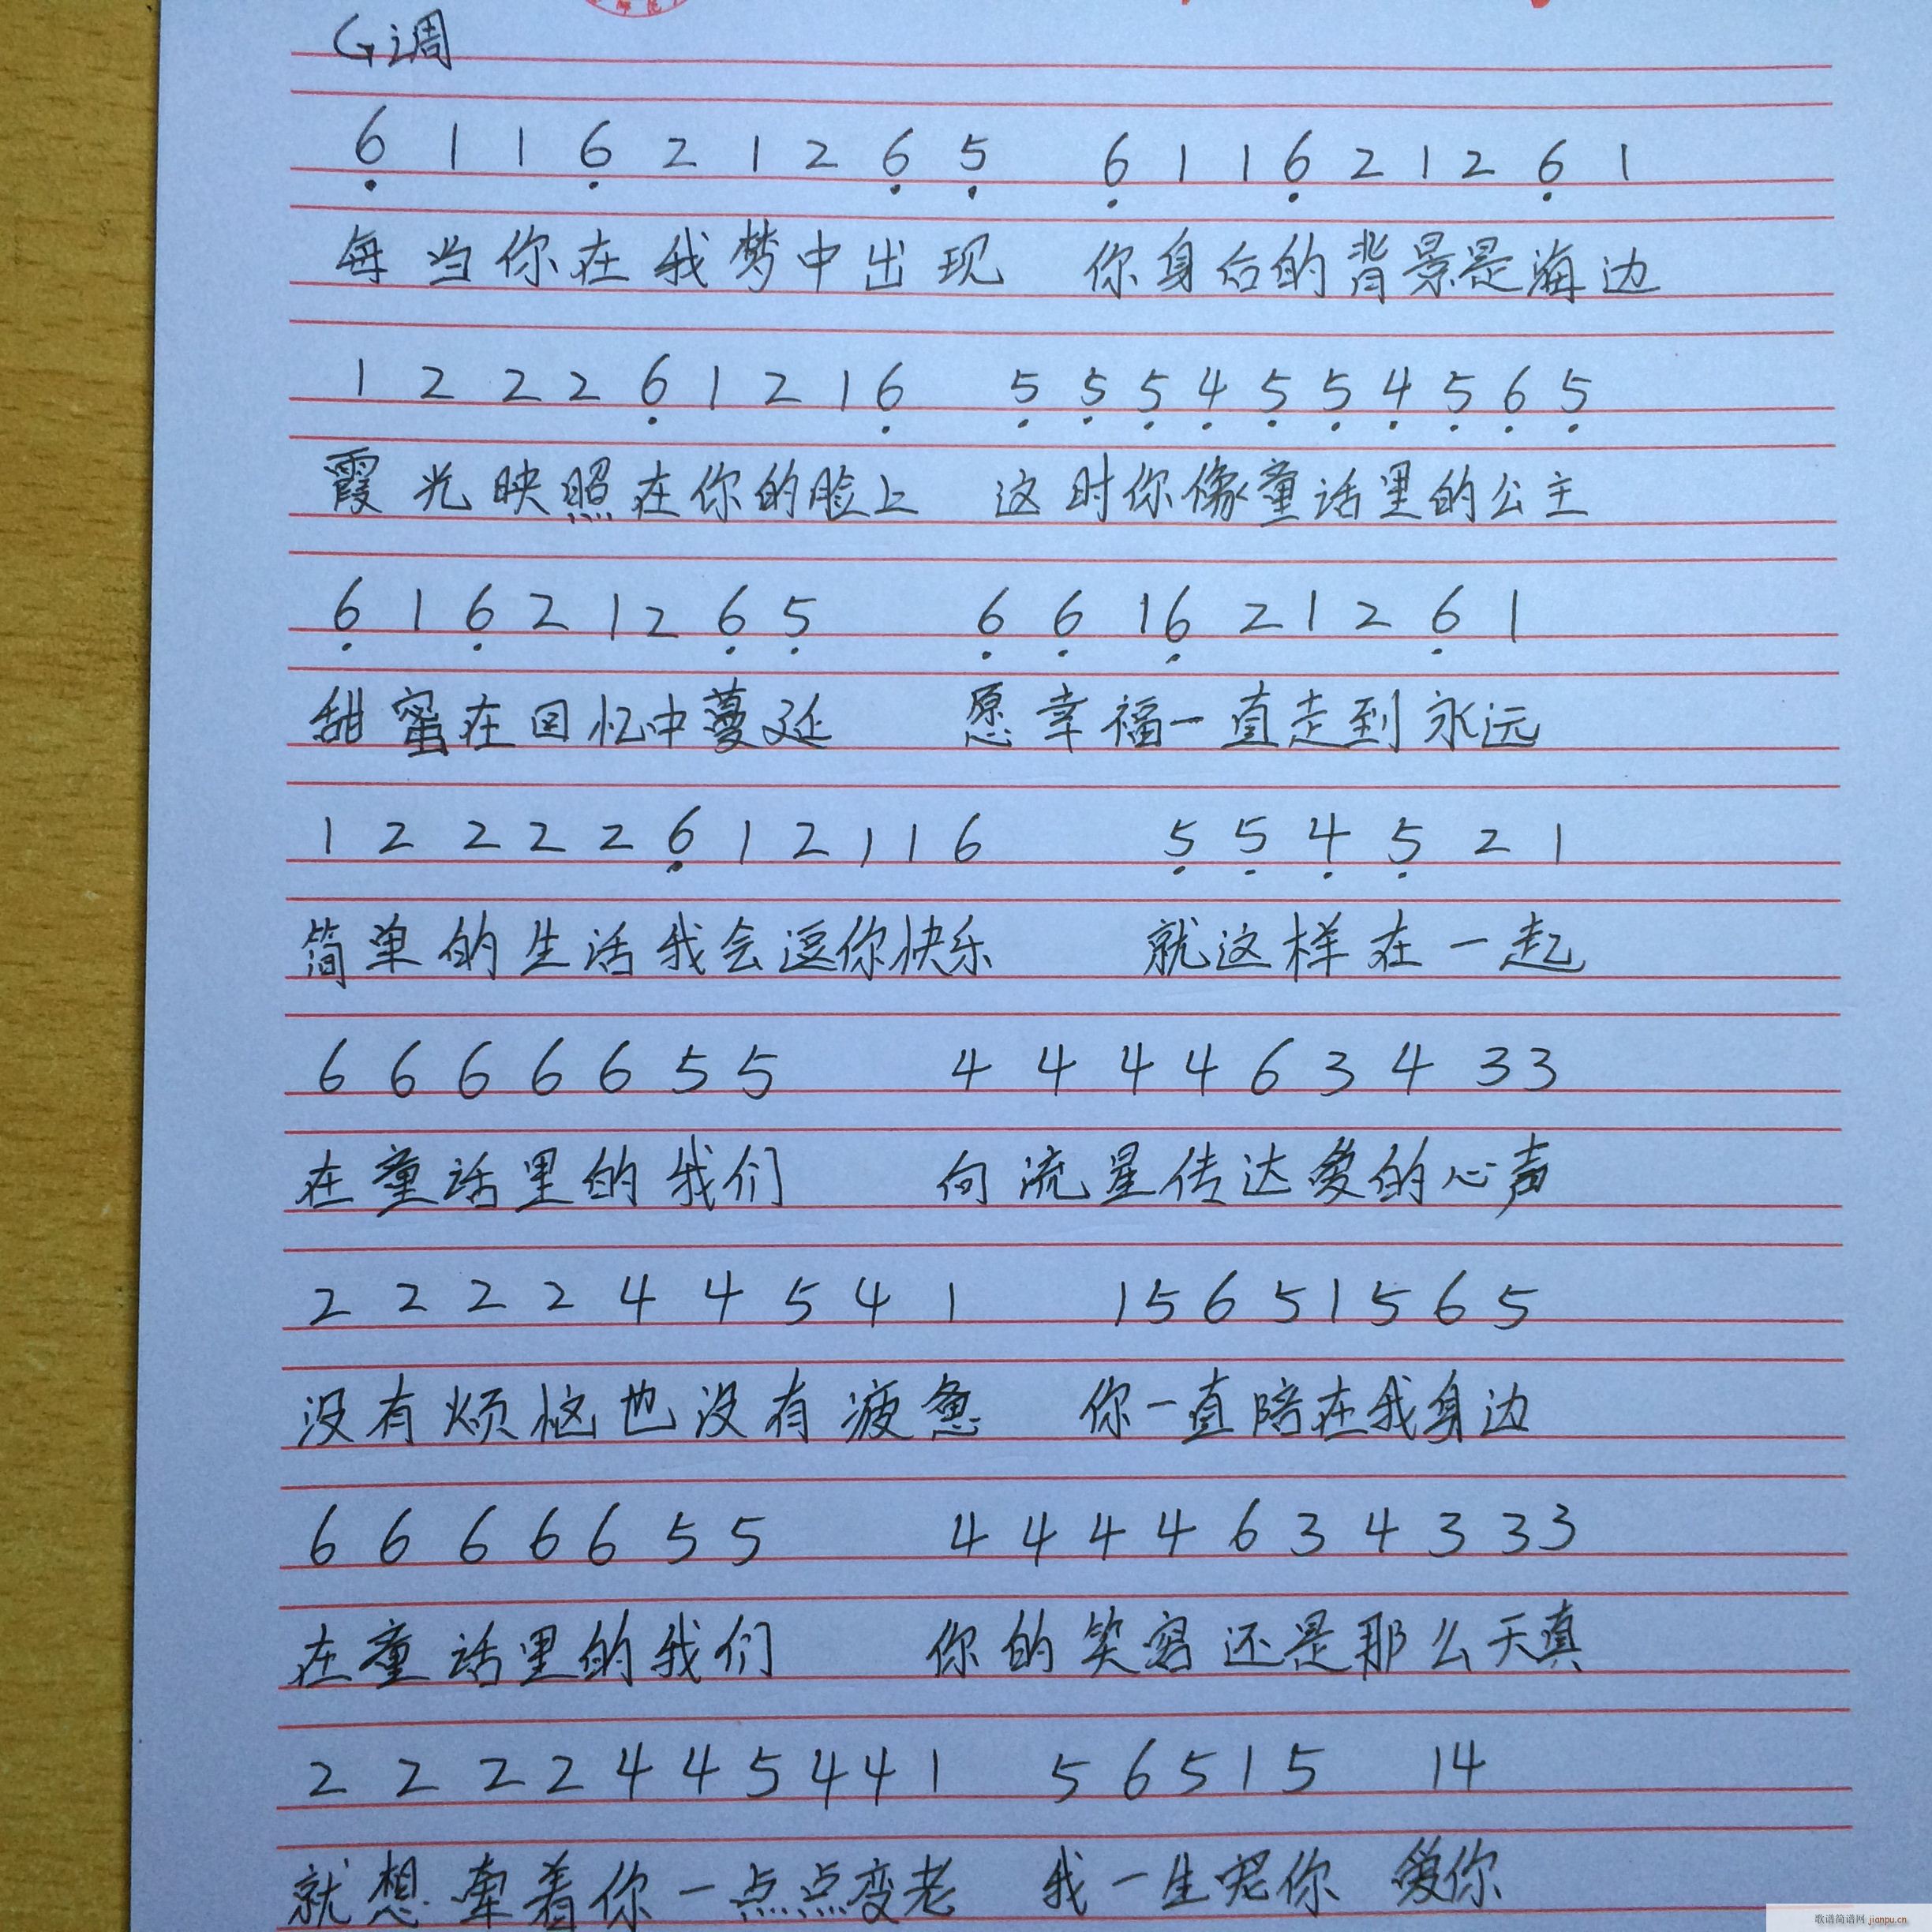 G调
6̣ 1 1 6̣ 2 1 2 6̣ 5̣ 6̣ 1 1 6̣ 2 1 2 6̣ 1
每当你在我梦中出现 你身后的背景是海边
1 2 2 2 6̣ 1 2 1 6̣ 5̣ 5̣ 5̣ 4̣ 5̣ 5̣ 4̣ 5̣ 6̣ 5̣
霞光映照在你的脸上 这时你像童话里的公主
6̣ 1 6̣ 2 1 2 6̣ 5̣ 6̣ 6̣ 1 6̣ 2 1 2 6̣ 1
甜蜜在回忆中蔓延 愿幸福一直走到永远
1 2 2 2 2 6̣ 1 2 1 1 6 5̣ 5̣ 4̣ 5̣ 2 1
简单的生活我会逗你快乐 就这样在一起
6 6 6 6 6 5 5 4 4 4 4 6 3 4 3 3
在童话里的我们 向流星传达爱的心声
2 2 2 2 4 4 5 4 1 1 5 6 5 1 5 6 5
没有烦恼也没有疲惫 你一直陪在我身边
6 6 6 6 6 5 5 4 4 4 4 6 3 4 3 3 3
在童话里的我们 你的笑容还是那么天真
2 2 2 2 4 4 5 4 4 1 5 6 5 1 5 1 4
就想牵着你一点点变老 我一生把你 爱你
歌谱简谱网 jianpu.cn